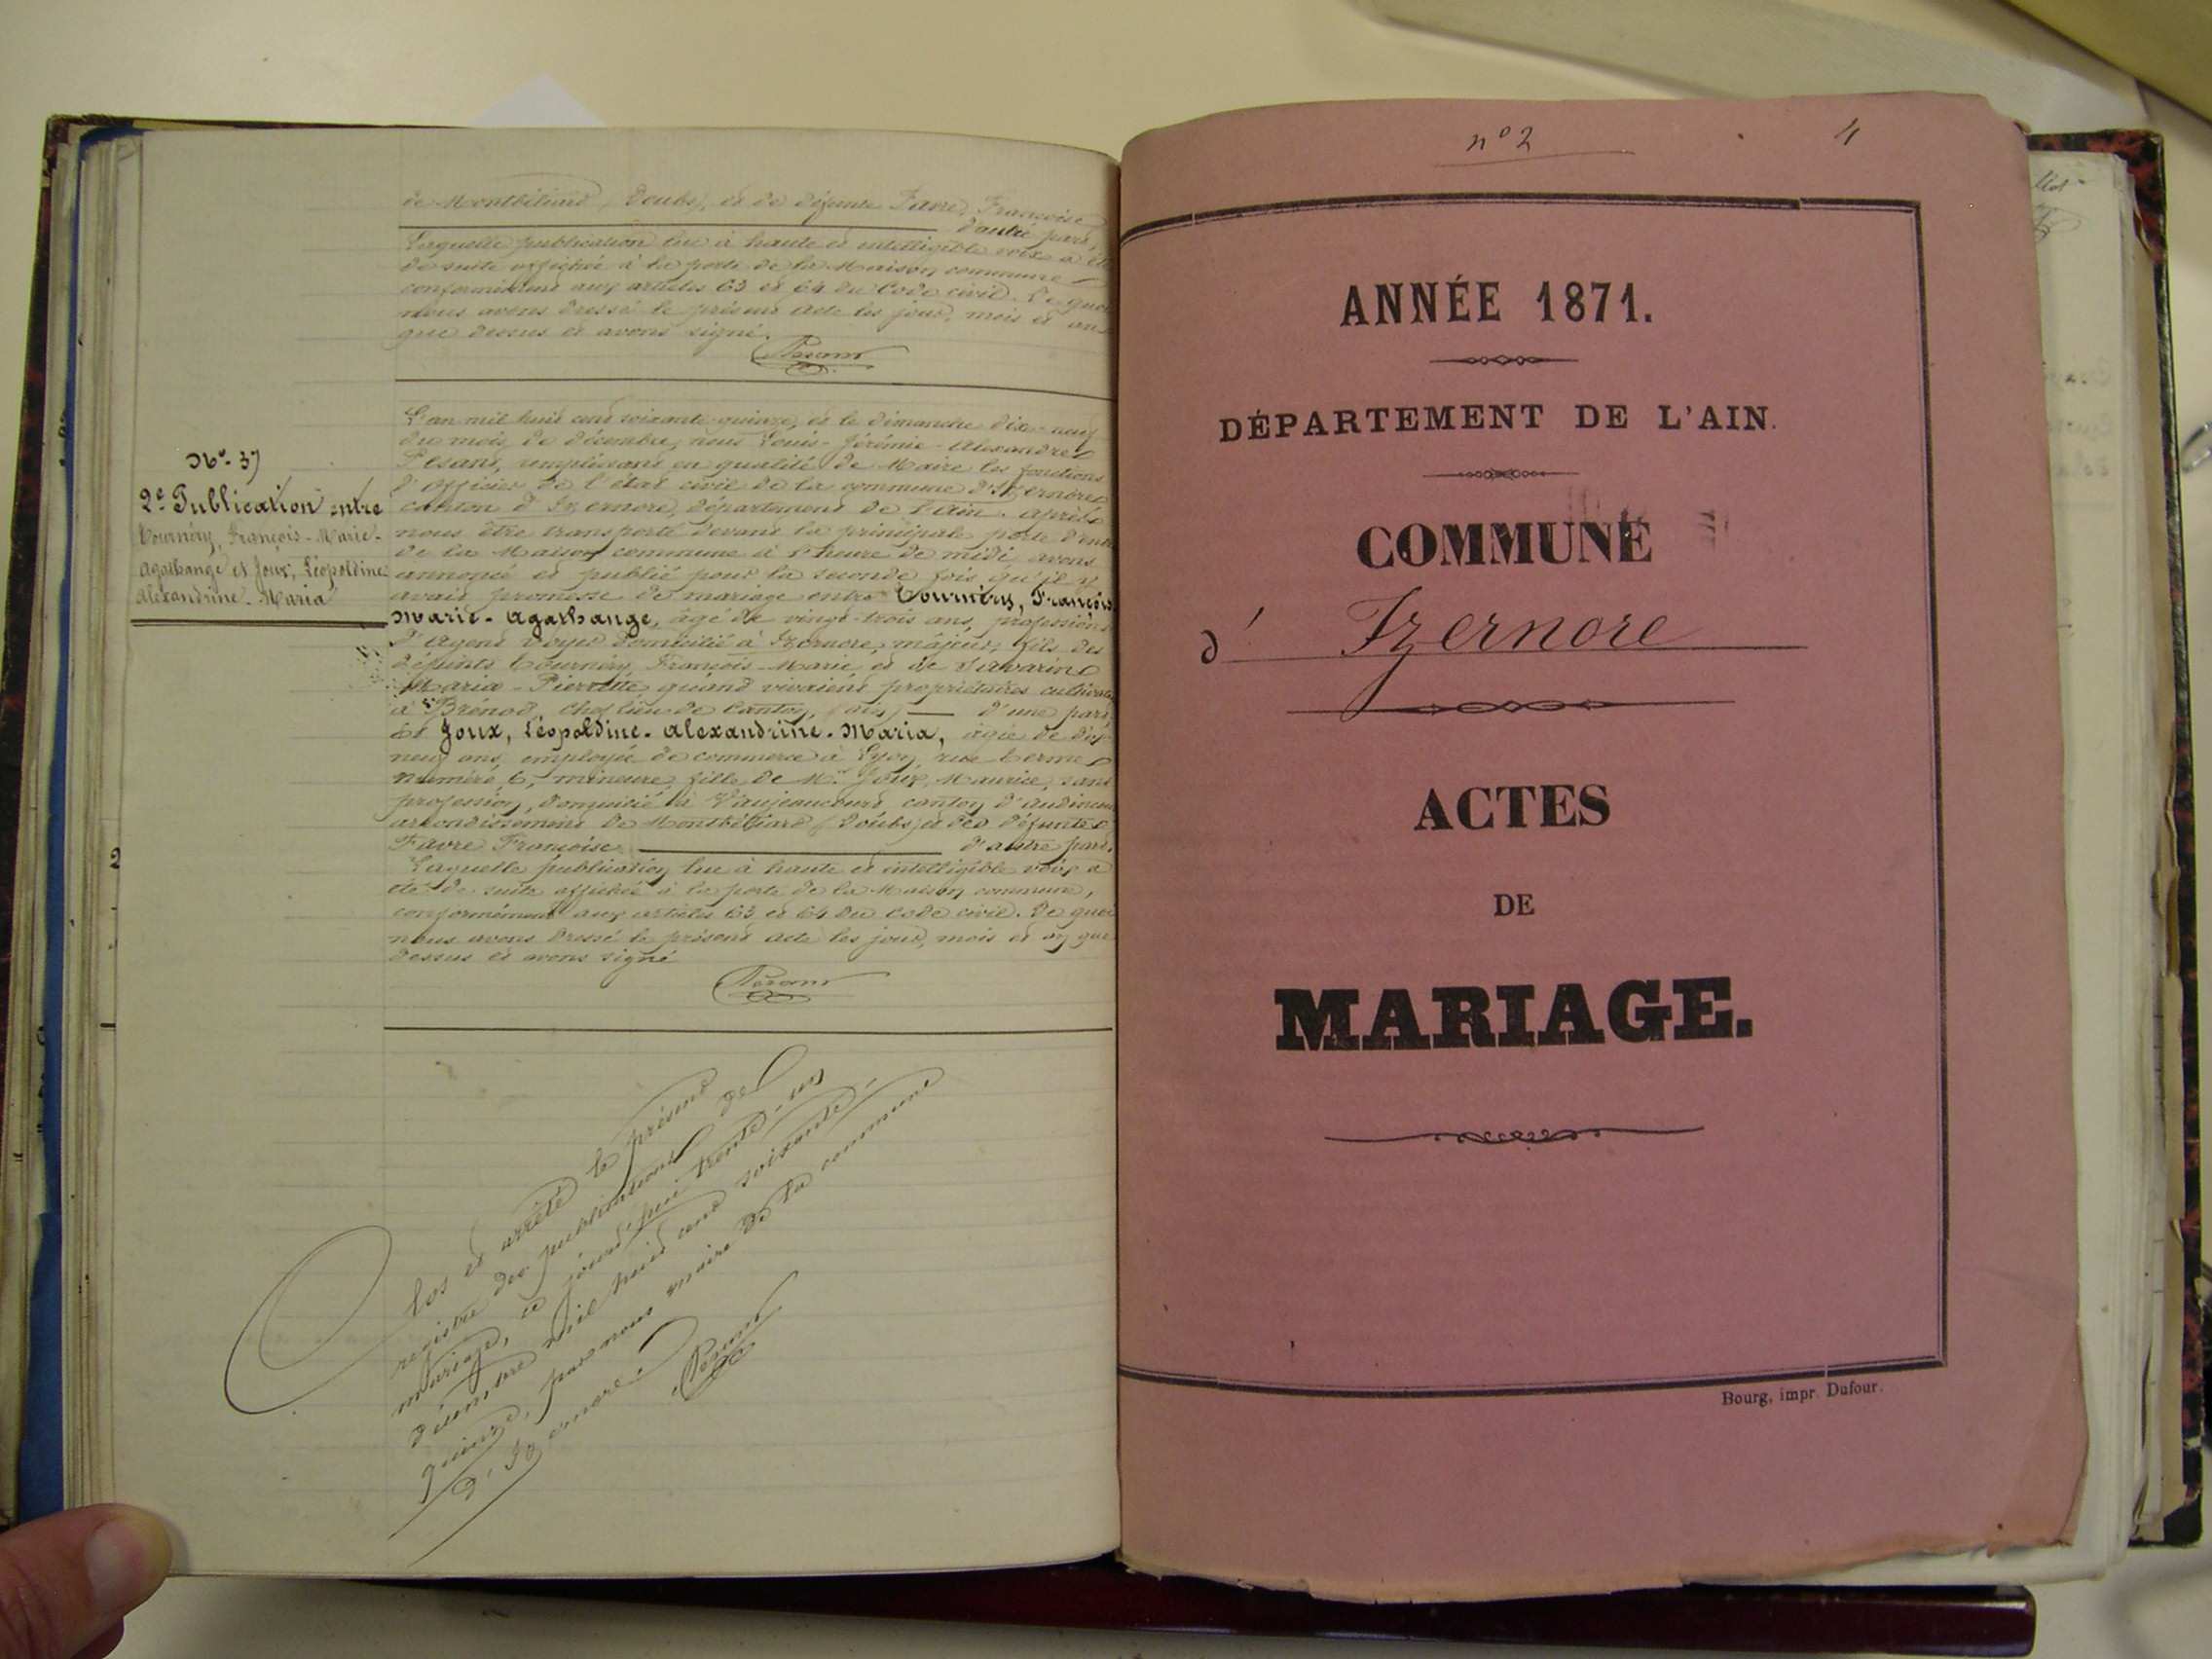 de Montbéliard, (Doubs), et de défunte Favre, Françoise
d'autre part,
Laquelle publication lue à haute et intelligible voix a été
de suite affichée à la porte de la Maison commune
conformément aux articles 63 et 64 du Code civil. De quoi
nous avons dressé le présent acte les jour, mois et an
que dessus et avons signé.
L'an mil huit cent soixante quinze, et le dimanche dix-neuf
du mois de décembre, nous Louis-Jérémie-Alexandre
remplissant en qualité de Maire les fonctions
d'officier de l'état civil de la commune d'Izernore
canton d'Izernore, département de l'Ain. après
nous être transporté devant la principale porte d'entrée
de la Maison commune à l'heure de midi, avons
annoncé et publié pour la seconde fois qu'il y
avait promesse de mariage entre Tournéry, François
Marie-Agathange, âgé de vingt-trois ans, profession
d'Agent voyer domicilié à Izernore, majeur, fils des
défunts Tournéry, François-Marie et de Savarin
Maria-Pierrette, quand vivaient propriétaires cultivateurs
à Brénod, chef lieu de Canton, (ain) d'une part,
Et Joux, Léopoldine-Alexandrine-Maria, âgée de dix
neuf ans, employée de commerce à Lyon, rue Terme
numéro 6, mineure, fille de Mr Joux, Maurice, sans
profession, domicilié à Vaujeaucourt, canton d'Audincourt
arrondissement de Montbéliard (Doubs) et de défunte
Favre Françoise d'autre part.
Laquelle publication lue à haute et intelligible voix a
été de suite affichée à la porte de la Maison commune,
conformément aux articles 63 et 64 du Code civil. De quoi
nous avons dressé le présent acte les jour, mois et an que
dessus et avons signé
No. 37
2e Publication entre
Tournéry, François-Marie-
Agathange et Joux, Léopoldine
Alexandrine-Maria
Clos et arrêté le présent
registre des publications de
mariage, ce jourd'hui trente-un
décembre mil huit cent soixante-
quinze, par nous maire de la commune
d'Izernore.
no 2
4
ANNÉE 1871.
DÉPARTEMENT DE L'AIN.
COMMUNE
d' Izernore
ACTES
DE
MARIAGE.
Bourg, impr. Dufour.